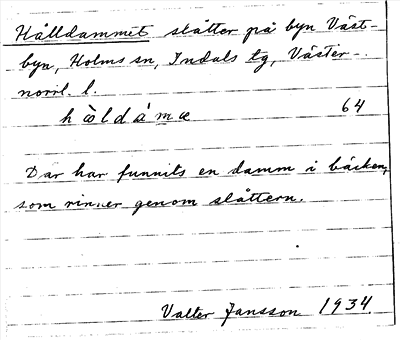 Hålldammet slåtter på byn Väst-
byn, Holms sn, Indals tg, Väster-
norrl. l.
hòldámæ 64
Där har funnits en damm i bäcken,
som rinner genom slåttern.
Valter Jansson 1934